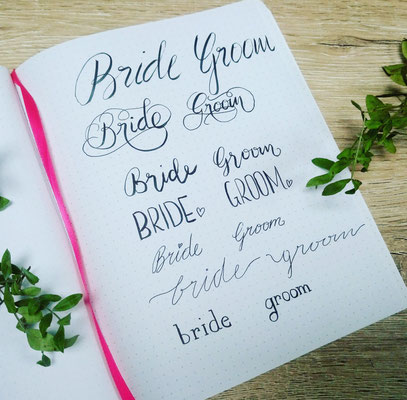 Bride Groom
Bride Groom
Bride Groom
BRIDE♡ GROOM♡
Bride Groom
bride groom
bride groom